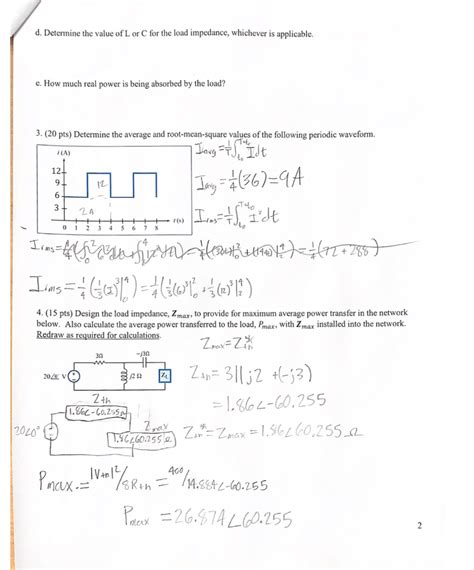 d. Determine the value of L or C for the load impedance, whichever is applicable.
e. How much real power is being absorbed by the load?
3. (20 pts) Determine the average and root-mean-square values of the following periodic waveform.
i (A)
12
9
6
3
0 1 2 3 4 5 6 7 8
t (s)
12
2A
Iavg = 1/T ∫ I dt
Iavg = 1/4 (36) = 9A
Irms = 1/T ∫ I² dt
Irms =
= 1/4 (72 + 288)
Irms = 1/4 (1/3 (I)³ |⁴₀) = 1/4 (1/3 (6)³ |²₀ + 1/3 (12)³ |⁴₂)
4. (15 pts) Design the load impedance, Zmax, to provide for maximum average power transfer in the network
below. Also calculate the average power transferred to the load, Pmax, with Zmax installed into the network.
Redraw as required for calculations.
Zmax = Z*th
3Ω
-j3Ω
20∠0° V
j2 Ω
ZL
Zth = 3||j2 + (-j3)
= 1.86∠-60.255
Zth
1.86∠-60.255Ω
20∠0°
Zmax
1.86∠60.255Ω
Zth* = Zmax = 1.86∠60.255 Ω
Pmax = |Vth|²/8Rth = 400/14.88∠-60.255
Pmax = 26.87∠60.255
2